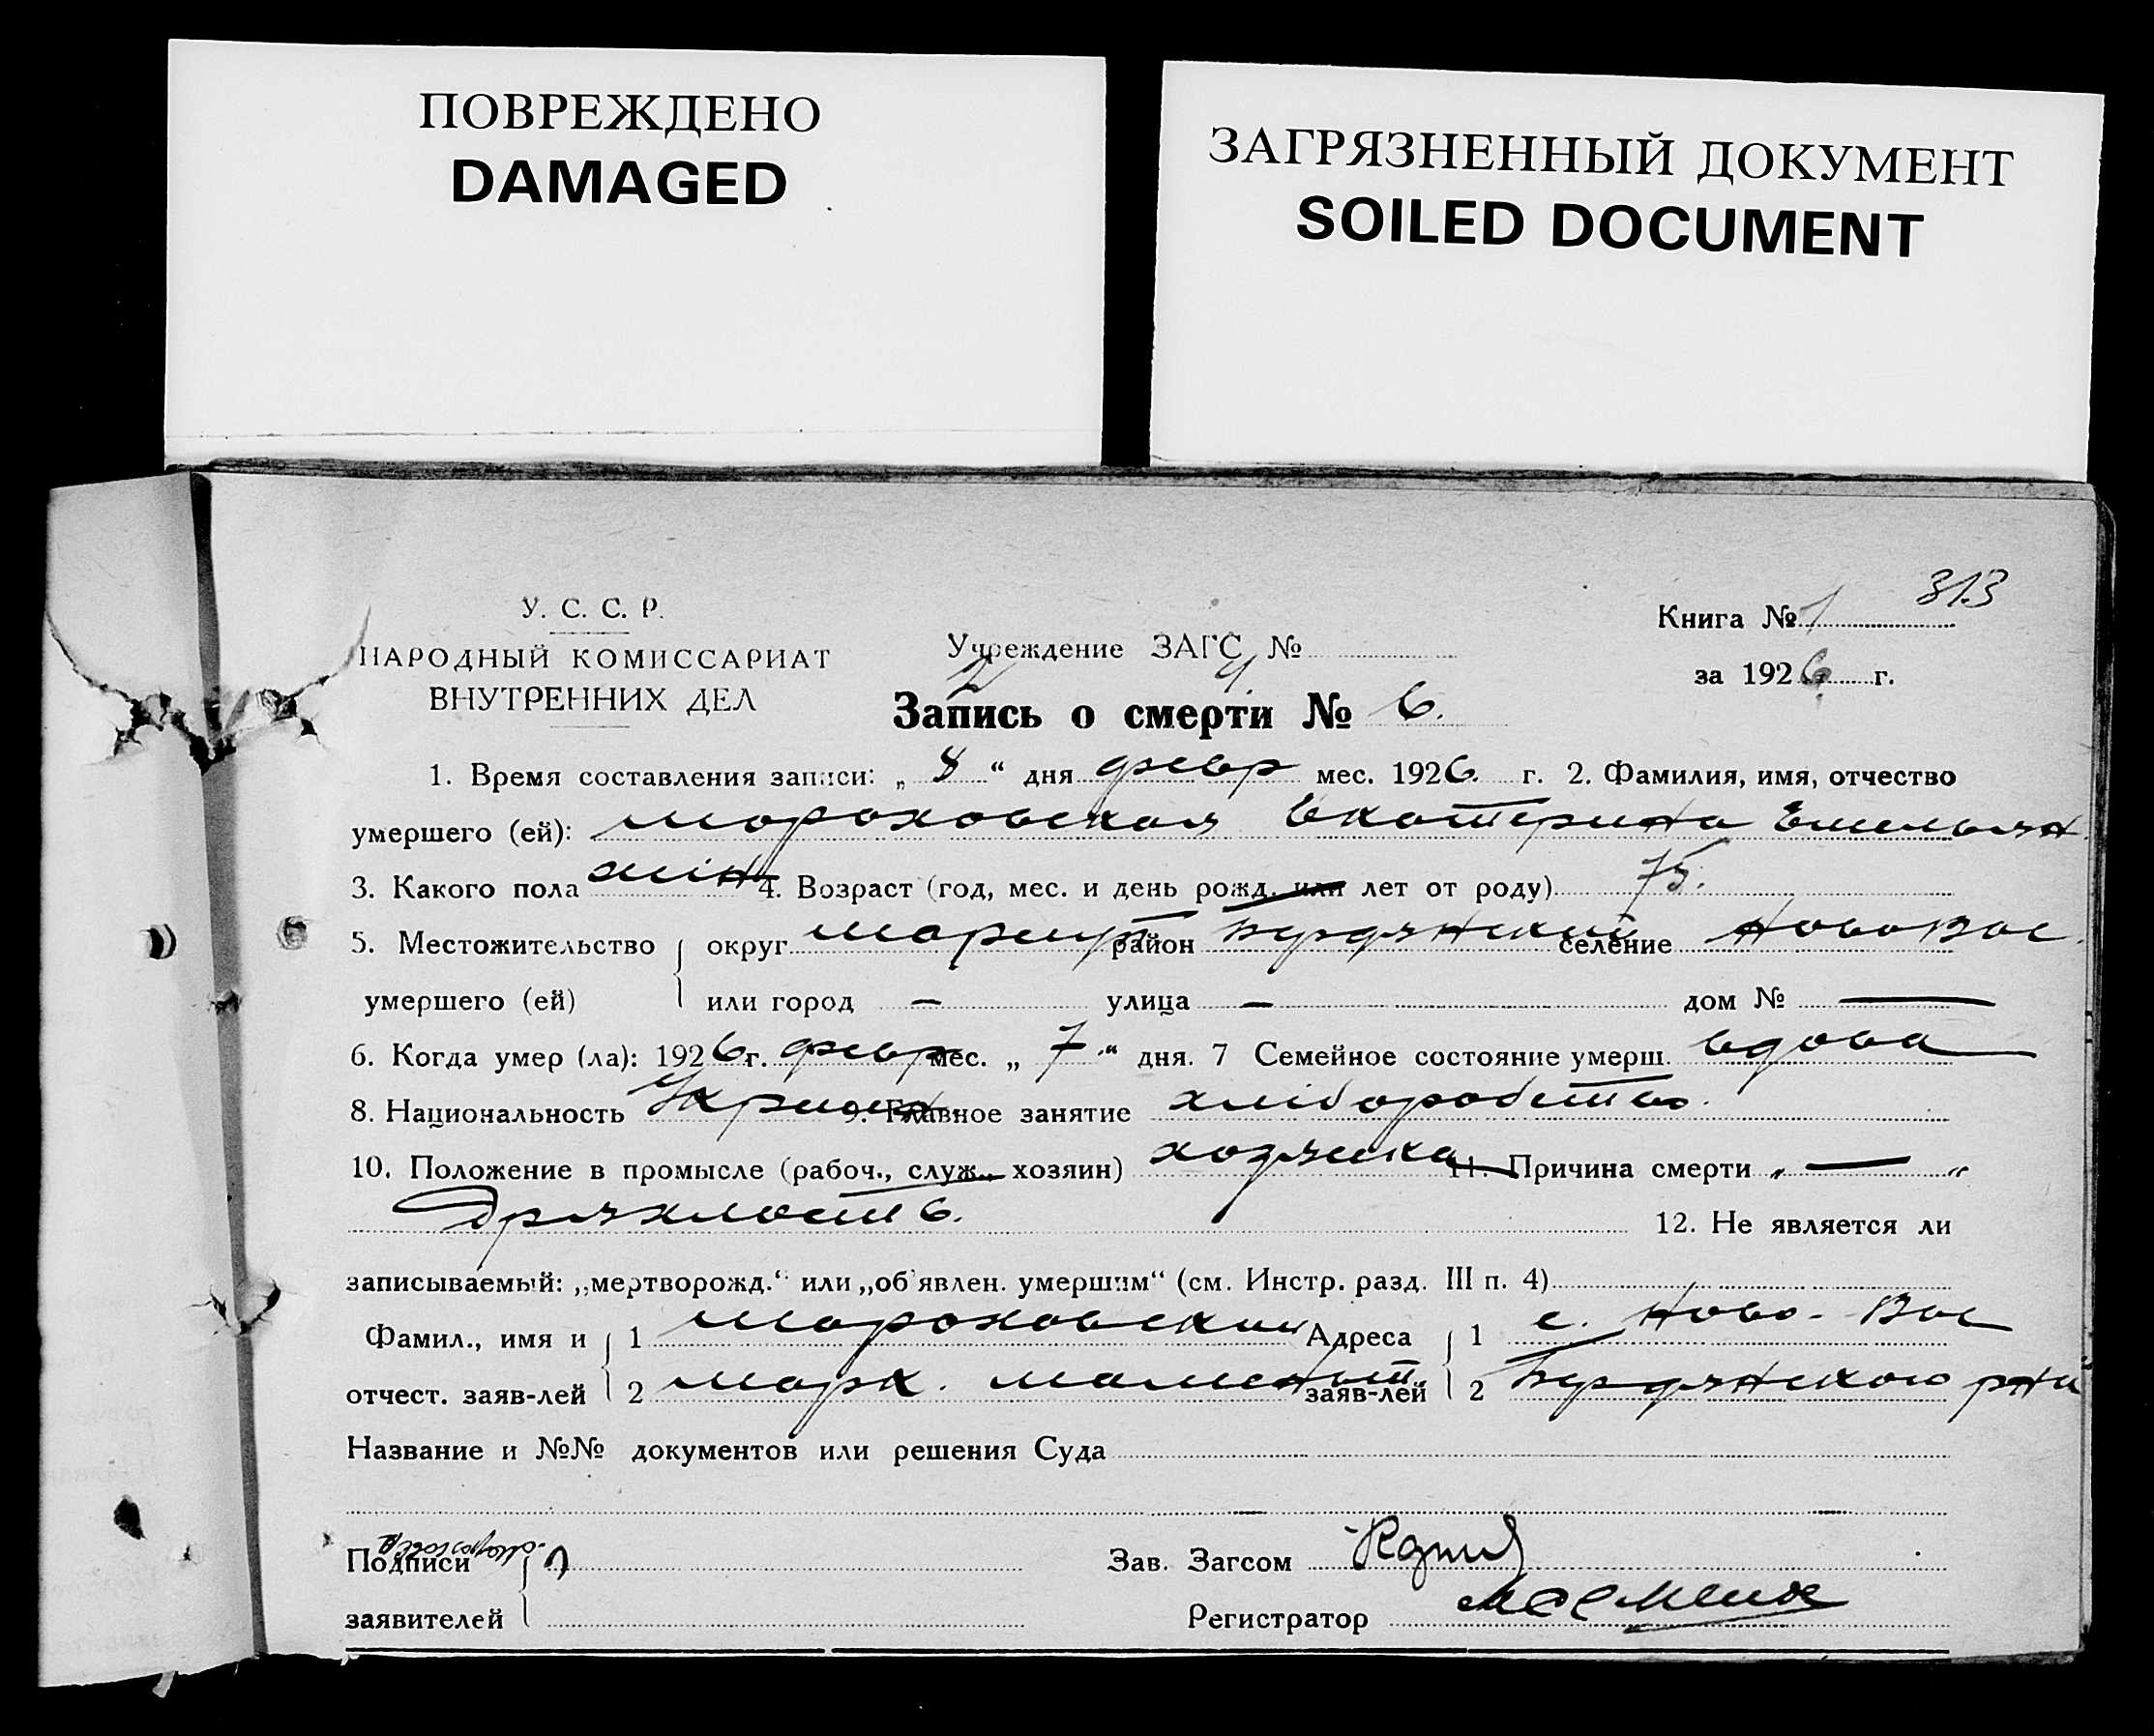 ПОВРЕЖДЕНО
DAMAGED
ЗАГРЯЗНЕННЫЙ ДОКУМЕНТ
SOILED DOCUMENT
313
У. С. С. Р.
НАРОДНЫЙ КОМИССАРИАТ
ВНУТРЕННИХ ДЕЛ
Учреждение ЗАГС №
Книга № 1
за 1926 г.
Запись о смерти № 6.
1. Время составления записи: „ 8 “ дня февр мес. 1926. г. 2. Фамилия, имя, отчество
умершего (ей): Мороховская Екатерина Емельян.
3. Какого пола жін 4. Возраст (год, мес. и день рожд. или лет от роду) 75.
5. Местожительство округ Мариуп район Бердянский селение НовоВас.
умершего (ей) или город — улица — дом № —
6. Когда умер (ла): 1926 г. февр мес. „ 7 “ дня. 7 Семейное состояние умерш. вдова
8. Национальность Украин. 9. Главное занятие хліборобство.
10. Положение в промысле (рабоч., служ., хозяин) хозяйка 11. Причина смерти „ — “
Дряхлость.
12. Не является ли
записываемый: „мертворожд.“ или „об'явлен. умершим“ (см. Инстр. разд. III п. 4)
Фамил., имя и 1 Мороховский Адреса 1 с. Ново-Вас
отчест. заяв-лей 2 Марк. заяв-лей 2 Бердянского рай
Название и №№ документов или решения Суда
Подписи
Зав. Загсом
заявителей
Регистратор